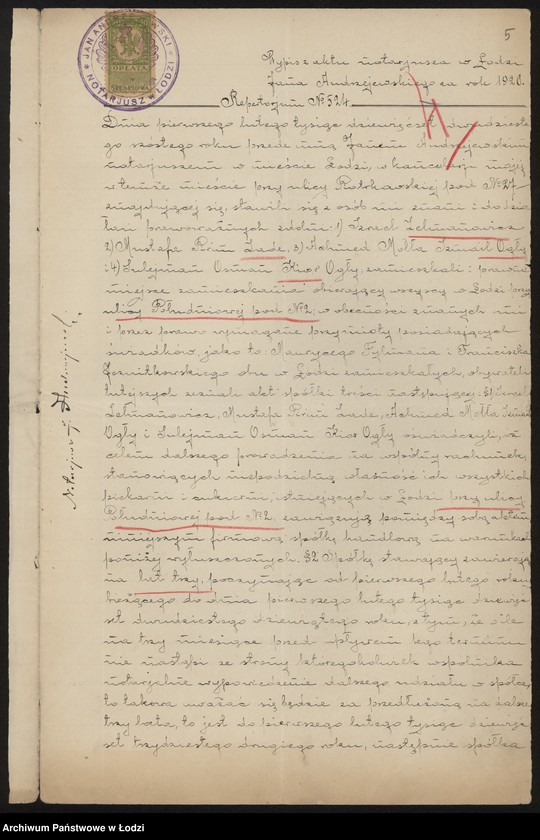 JAN AND SKI
NOTARJUSZ w ŁODZI
OPŁATA
STEMPLOWA
5
Wypis z aktu notarjusza w Łodzi
Jana Andrzejewskiego za rok 1926.
Repertorjum № 524
Dnia pierwszego lutego tysiąc dziewięćset dwudzieste-
go szóstego roku przede mną Janem Andrzejewskim
notarjuszem w mieście Łodzi, w kancelarji mojej
w temże mieście przy ulicy Piotrkowskiej pod № 27
znajdującej się, stawili się z osób mi znani i do dzia-
łań prawnych zdolni: 1) Izrael Zelmanowicz
2) Mustafa Prim Zade, 3) Achmed Molła Ismail Ogły
i 4) Sulejman Osman Kior Ogły, zamieszkali: prawne
miejsce zamieszkania obierający wszyscy w Łodzi przy
ulicy Południowej pod № 2, w obecności znanych mi
i przez prawo wymagane przymioty posiadających
świadków, jako to: Maurycego Fylmana i Franciszka
w Łodzi zamieszkałych, obywateli
tutejszych zeznali akt spółki treści następującej: §1 Izrael
Zelmanowicz, Mustafa Prim Zade, Achmed Molła Ismail
Ogły i Sulejman Osman Kior Ogły oświadczyli, że
celem dalszego prowadzenia na wspólny rachunek,
stanowiących niepodzielną własność ich wszystkich
piekarni i cukierni, istniejących w Łodzi przy ulicy
Południowej pod № 2, zawiązują pomiędzy sobą aktem
niniejszym firmową spółkę handlową na warunkach
poniżej wyłuszczonych. §2 Spółkę stawający zawierają
na lat trzy, poczynając od pierwszego lutego roku
bieżącego do dnia pierwszego lutego tysiąc dziewięć-
set dwudziestego dziewiątego roku, z tym, że o ile
na trzy miesiące przed upływem tego terminu
nie nastąpi ze strony któregokolwiek wspólnika
notarjalne wypowiedzenie dalszego udziału w spółce,
to takowa uważać się będzie za przedłużoną na dalsze
trzy lata, to jest do pierwszego lutego tysiąc dziewięć-
set trzydziestego drugiego roku, następnie spółka
Notarjusz J. Andrzejewski
Archiwum Państwowe w Łodzi